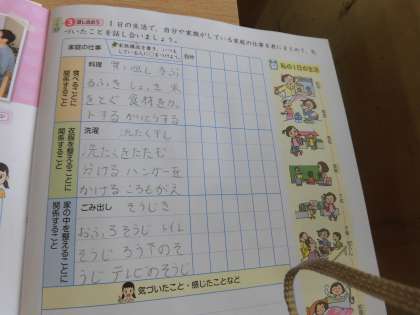 3 話し合おう 1日の生活で，自分や家族がしている家庭の仕事を表にまとめて，気
づいたことを話し合いましょう。
家庭の仕事
自分
私の1日の生活
食べることに
関係すること
料理 買い出し さら
ふき しょっき 米
をとぐ 食材をカッ
トする かたづける
衣服を整えることに
関係すること
洗たく せんたくほし
洗たくをたたむ
分ける ハンガーを
かける ころもがえ
家の中を整えることに
関係すること
ごみ出し そうじき
おふろそうじ トイレ
そうじ ろう下のそ
うじ テレビのそうじ
気づいたこと・感じたことなど